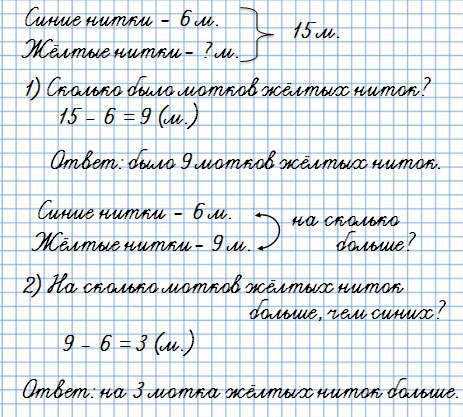 Синие нитки – 6 м.
15 м.
Жёлтые нитки – ? м.
1) Сколько было мотков жёлтых ниток?
15 – 6 = 9 (м.)
Ответ: было 9 мотков жёлтых ниток.
Синие нитки – 6 м.
на сколько
Жёлтые нитки – 9 м.
больше?
2) На сколько мотков жёлтых ниток
больше, чем синих?
9 – 6 = 3 (м.)
Ответ: на 3 мотка жёлтых ниток больше.